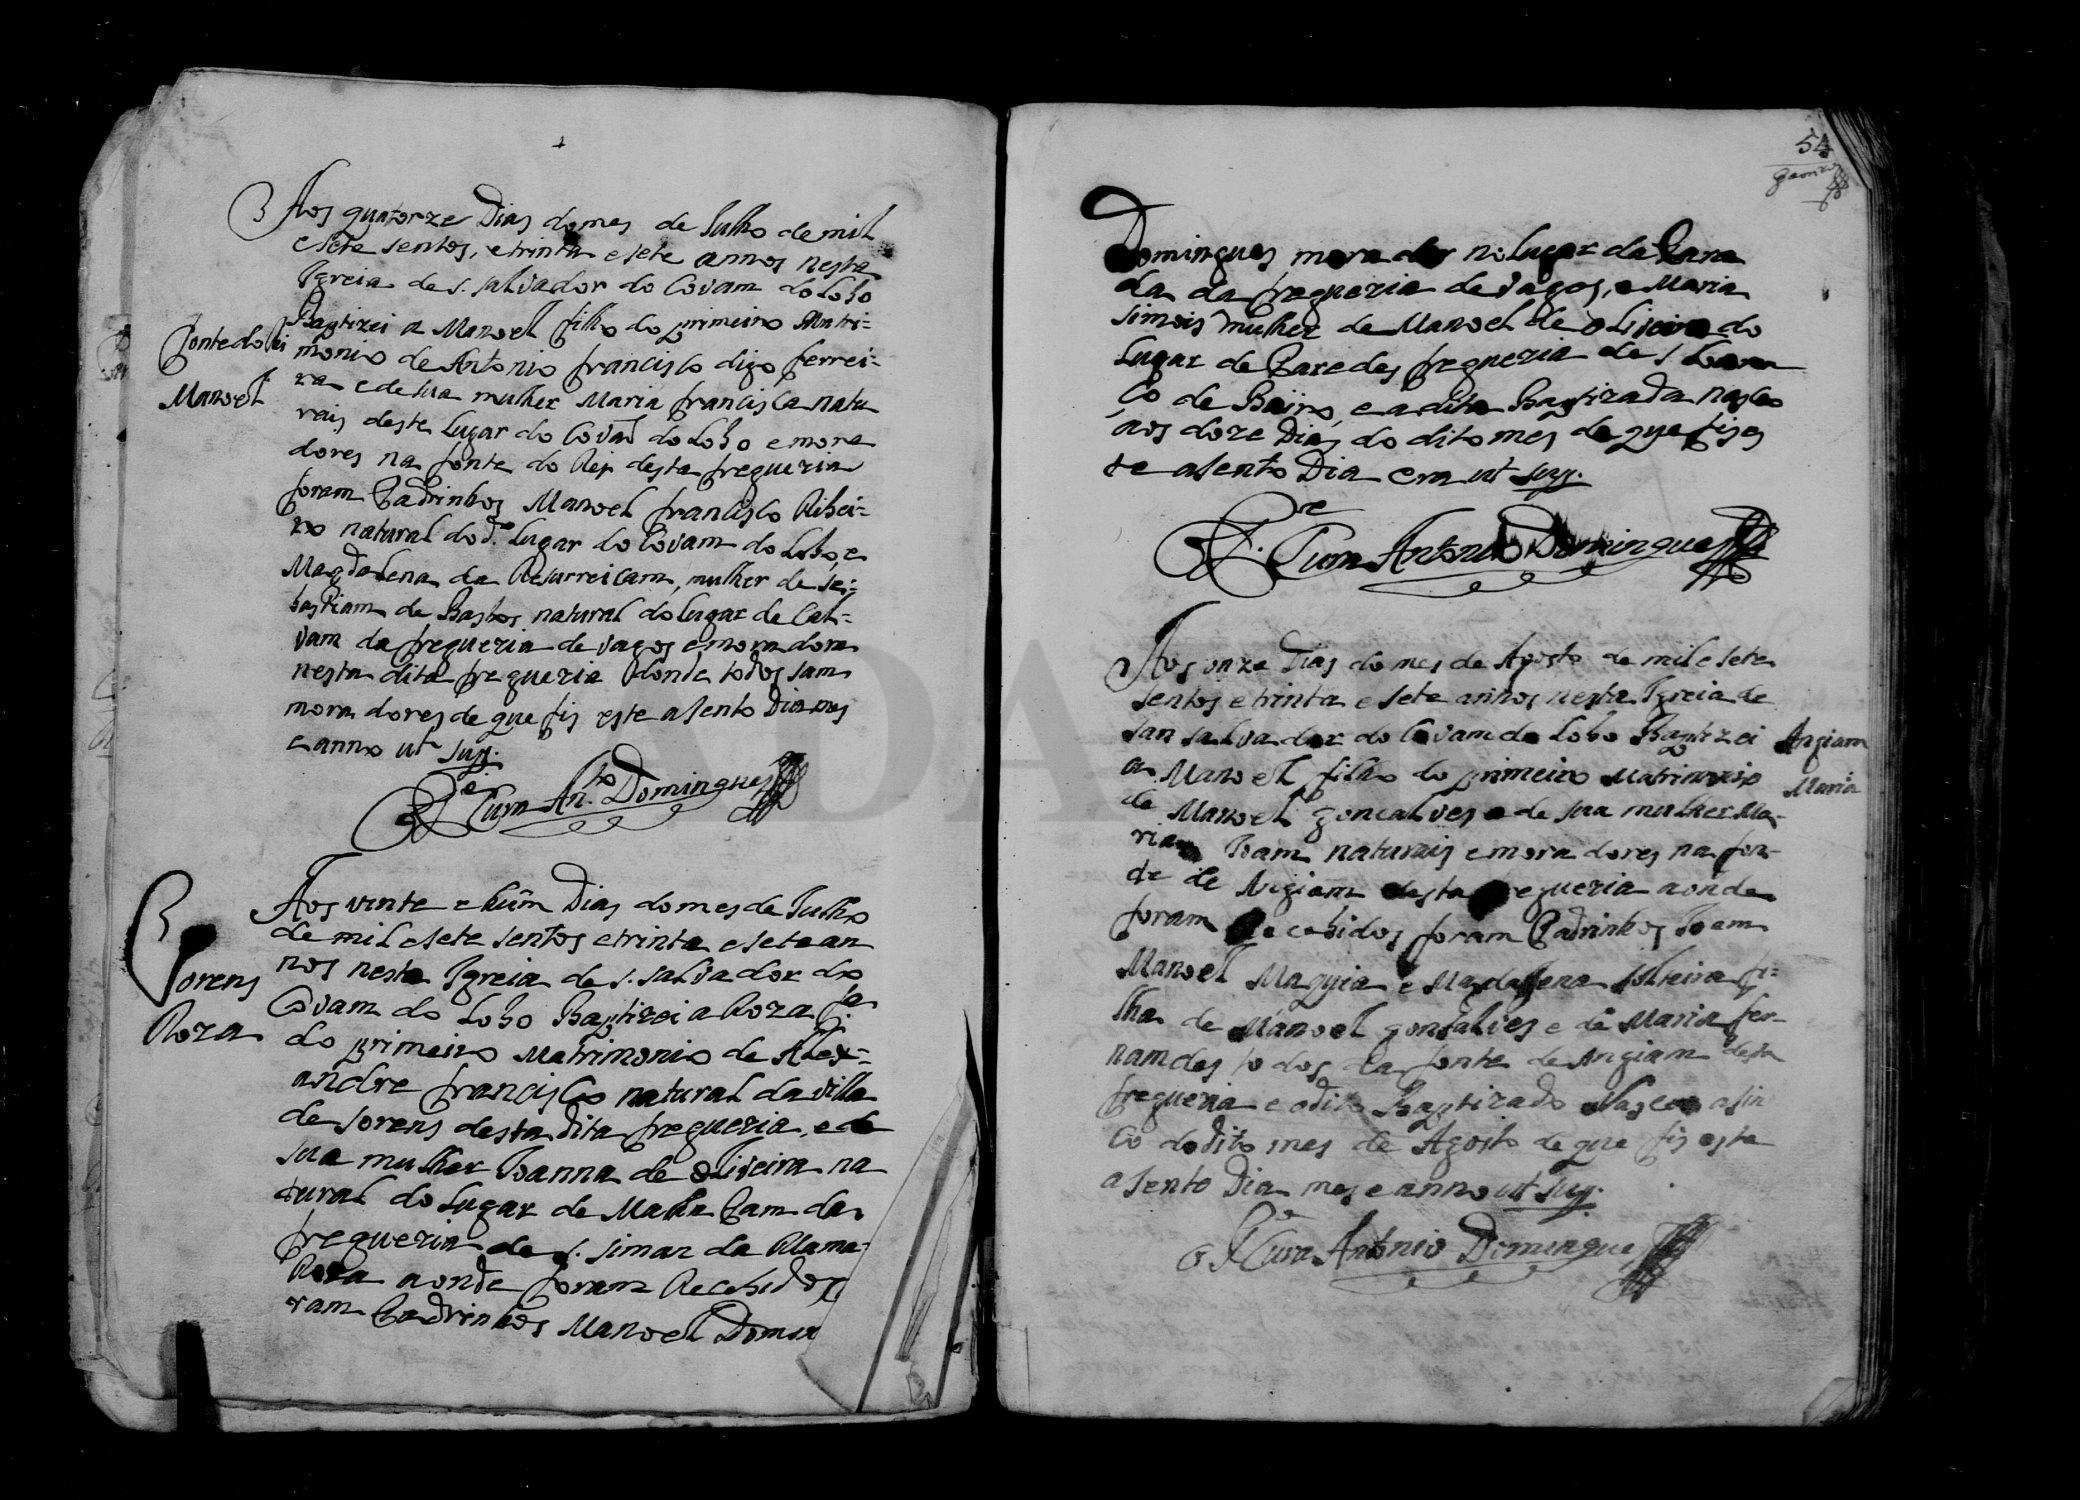 Aos quatorze Dias domes de Julho de mil
esete sentos, etrinta esete annos nesta
Igreia de S. Salvador do Covam do Lobo
Baptizei a Manoel filho do primeiro Matri=
Fonte do Rei
monio de Antonio francisco digo ferrei=
Manoel
ra e de sua mulher Maria francisca natu
rais deste Lugar do Covão do Lobo e mora
dores na fonte do Rei desta fregueria
foram Padrinhos Manoel francisco Ribei=
ro natural do d.º Lugar do Covam do Lobo, e
Magdalena da Resurreicam, mulher de Sei=
bastiam de Bastos natural do lugar de Cal=
vam da fregueria de Vagos emoradora
nesta dita fregueria donde todos sam
moradores de que fis este asento Dia mes
e anno ut sup.
O P.e Cura An.to Domingues
Aos vinte e hũm Dias do mes de Julho
de mil esete sentos etrinta esete an
nos nesta Igreia de S. Salvador do
Sorens
Covam do Lobo Baptizei a Roza f.a
Roza
do primeiro Matrimonio de Alex=
andre francisco natural da Villa
de Sorens desta dita fregueria, e de
sua mulher Joanna de oliveira na
tural do Lugar de Malha Pam da
fregueria de S. Simar da Mama=
Roza aonde foram Recebidos
ram Padrinhos Manoel Domin
54
Domingues morador no Lugar da
da da fregueria de Vagos, e Maria
Simois mulher de Manoel de oliveira do
Lugar de Paredes fregueria de S.
Co de Bairo, e a dita Baptizada nasceo
aos doze Dias do dito mes de que fis es
te asento Dia era ut sup.
O P.e Cura Antonio Domingues
Aos onze Dias do mes de Agosto de mil e sete
sentos etrinta e sete annos nesta Igreia de
San Salvador do Covam do Lobo Baptizei
Angiam
a Manoel filho do primeiro Matrimonio
Maria
de Manoel goncalves e de sua mulher Ma-
riam Joam naturais emoradores na fon-
te de Angiam desta fregueria aonde
foram Recebidos foram Padrinhos Joam
Manoel e Magdalena solteira fi=
lha de Manoel gonsalves e de Maria fer-
namdes todos da fonte de Angiam desta
fregueria e o dito Baptizado Nasceo a sin
Co do dito mes de Agosto de que fis este
asento Dia mes e anno ut sup.
O P.e Cura Antonio Domingues
ADA